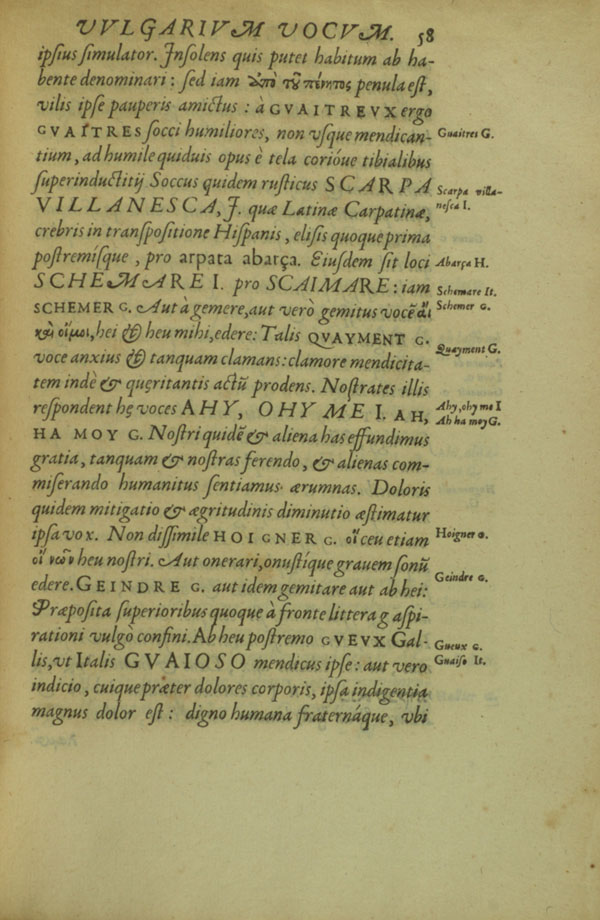 VVLGARIVM VOCVM. 58
ipsius simulator. Insolens quis putet habitum ab ha-
bente denominari: sed iam ἀπὸ τοῦ πένητος penula est,
vilis ipse pauperis amictus: à GVAITREVX ergo
GVAITRES socci humiliores, non vsque mendican-
Guaitres G.
tium, ad humile quiduis opus è tela corióue tibialibus
superinductitij Soccus quidem rusticus SCARPA
Scarpa villa-
VILLANESCA, I. quæ Latinæ Carpatinæ,
nesca I.
crebris in transpositione Hispanis, elisis quoque prima
postremisque, pro arpata abarça. Eiusdem sit loci
Abarça H.
SCHEMARE I. pro SCAIMARE: iam
Schemare It.
SCHEMER G. Aut à gemere, aut verò gemitus vocē αἲ
Schemer G.
καὶ οἴμοι, hei & heu mihi, edere: Talis QVAYMENT G.
Quayment G.
voce anxius & tanquam clamans: clamore mendicita-
tem indè & quęritantis actū prodens. Nostrates illis
respondent hę voces AHY, OHY ME I. AH,
Ahy, ohy me I
HA MOY G. Nostri quidē & aliena has effundimus
Ah ha moy G.
gratia, tanquam & nostras ferendo, & alienas com-
miserando humanitus sentiamus ærumnas. Doloris
quidem mitigatio & ægritudinis diminutio æstimatur
ipsa vox. Non dissimile HOIGNER G. οἴ ceu etiam
Hoigner G.
οἴ νωῒν heu nostri. Aut onerari, onustíque grauem sonū
edere. GEINDRE G. aut idem gemitare aut ab hei:
Geindre G.
Præposita superioribus quoque à fronte littera g aspi-
rationi vulgo confini. Ab heu postremo GVEVX Gal-
Gueux G.
lis, vt Italis GVAIOSO mendicus ipse: aut vero
Guaiso It.
indicio, cuique præter dolores corporis, ipsa indigentia
magnus dolor est: digno humana fraternáque, vbi